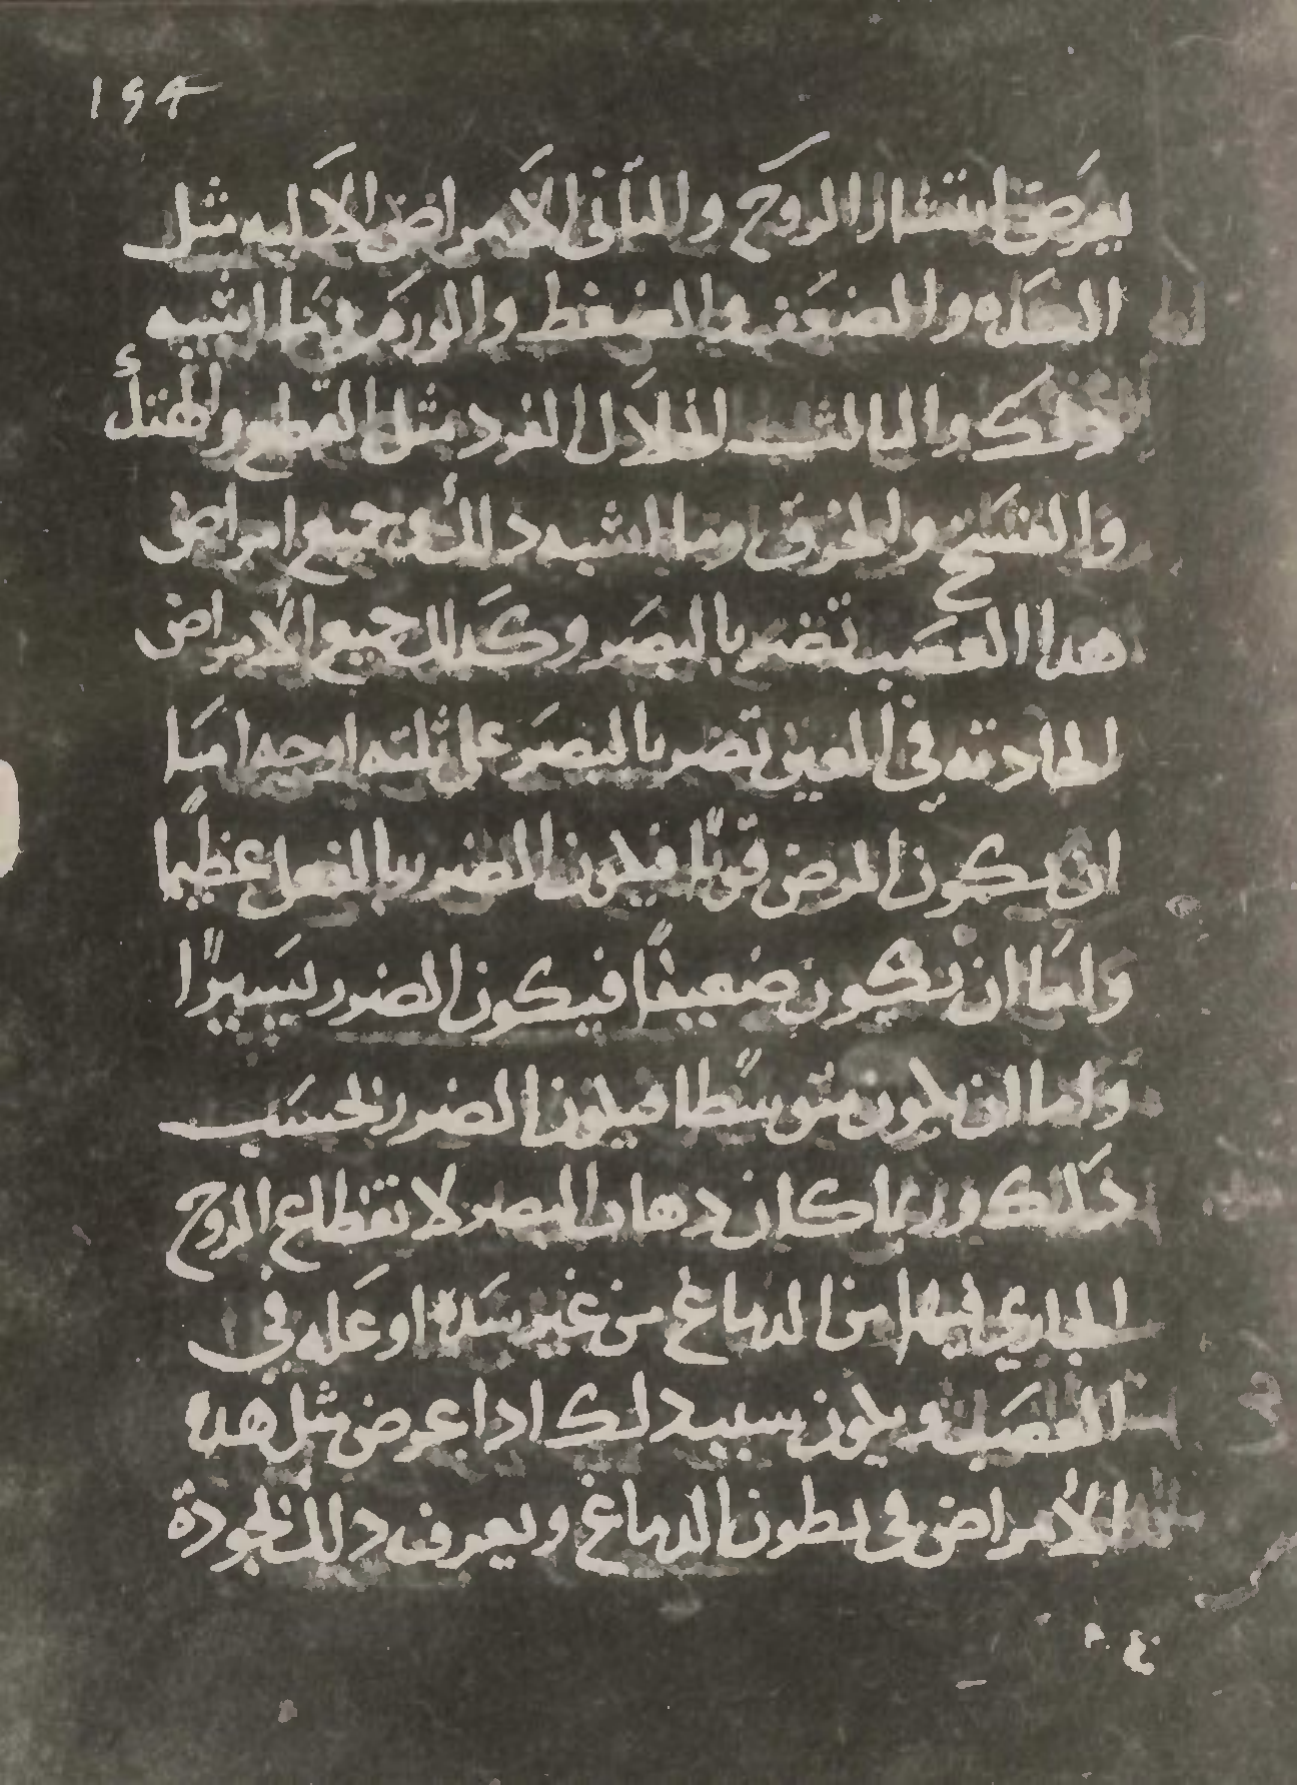 ١٩٣
يعرض انتشار الروح والثاني الامراض الاليه مثل
السده والضعف والضغط والورم وما اشبه
ذلك والثالث انحلال الفرد مثل القطع والهتك
والفسخ والخرق وما اشبه ذلك وجميع امراض
هدا العصب تضر بالبصر وكدلك جميع الامراض
الحادثه في العين تضر بالبصر على ثلثه اوجه اما
ان يكون المرض قويًا فيكون الضرر بالفعل عظيمًا
واما ان تكون ضعيفًا فيكون الضرر يسيرًا
واما ان يكون متوسطًا فيكون الضرر بحسب
ذلك وربما كان دهاب البصر لانقطاع الروح
الجاري فيها من الدماغ من غير سده او عله في
العصب ويكون سبب دلك ادا عرض مثل هده
الامراض في بطون الدماغ ويعرف دلك بجودة